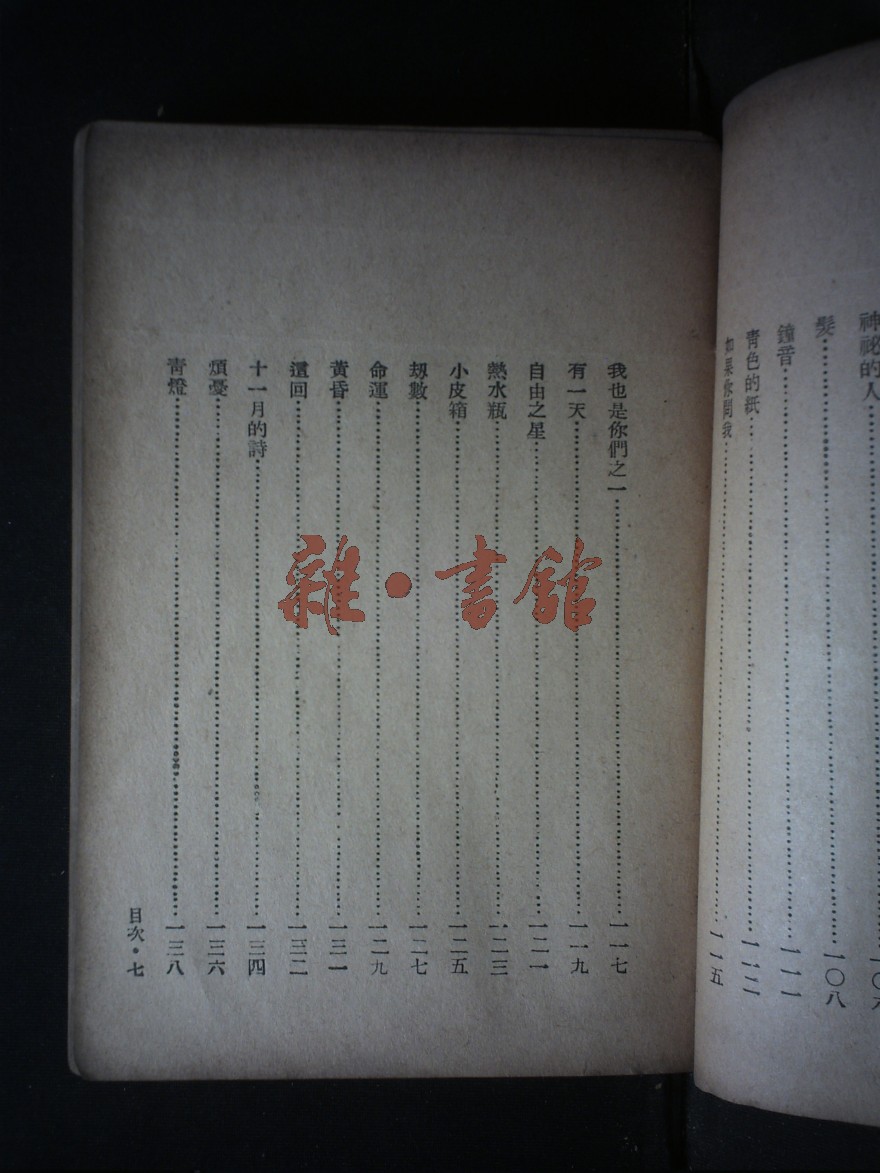 神祕的人
髮……一〇八
鐘音……一一一
青色的紙……一一二
如果你問我……一一五
我也是你們之一……一一七
有一天……一一九
自由之星……一二一
熱水瓶……一二三
小皮箱……一二五
劫數……一二七
命運……一二九
黃昏……一三一
還回……一三二
十一月的詩……一三四
煩憂……一三六
青燈……一三八
目次·七
雜·書館